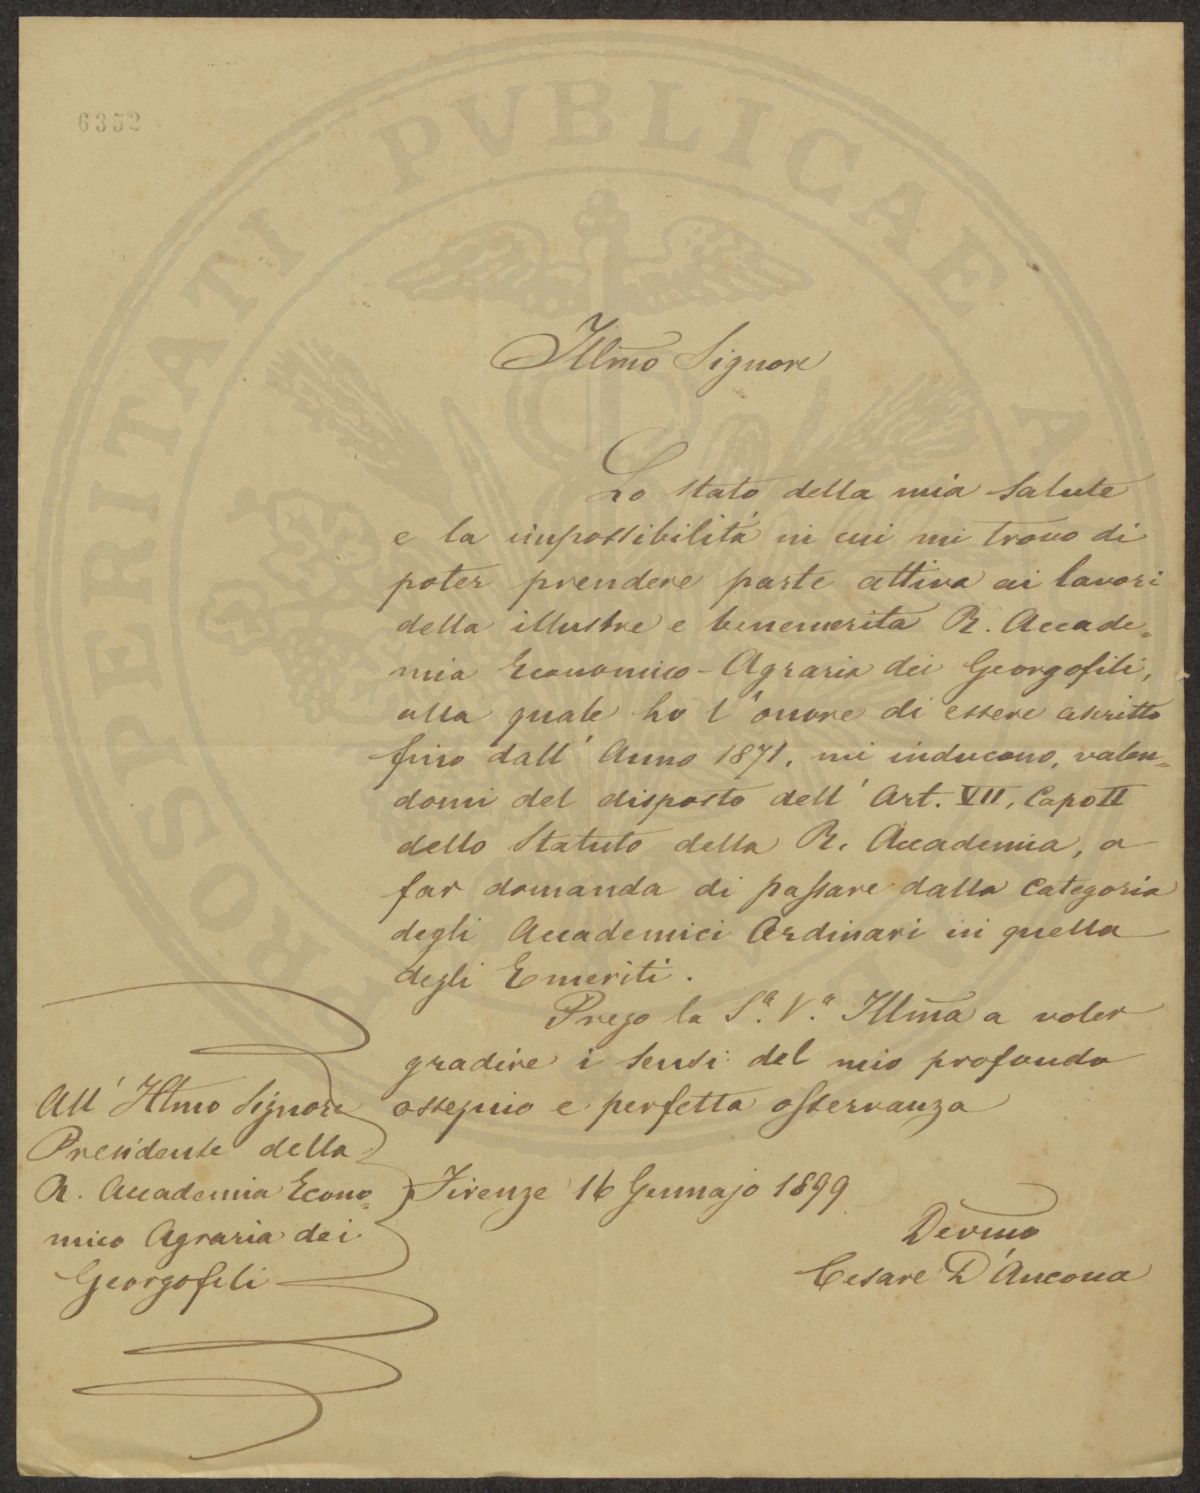 6352
PROSPERITATI PVBLICAE AVGENDAE
Illmo Signore
Lo stato della mia salute
e la impossibilità in cui mi trovo di
poter prendere parte attiva ai lavori
della illustre e benemerita R. Accade=
mia Economico-Agraria dei Georgofili,
alla quale ho l'onore di essere ascritto
fino dall'Anno 1871, mi inducono, valen=
domi del disposto dell'Art. VII, Capo II
dello Statuto della R. Accademia, a
far domanda di passare dalla Categoria
degli Accademici Ordinari in quella
degli Emeriti.
Prego la S.a V.a Illma a voler
gradire i sensi del mio profondo
ossequio e perfetta osservanza
Firenze 16 Gennajo 1899
Devmo
Cesare D'Ancona
All'Illmo Signore
Presidente della
R. Accademia Econo=
mico Agraria dei
Georgofili